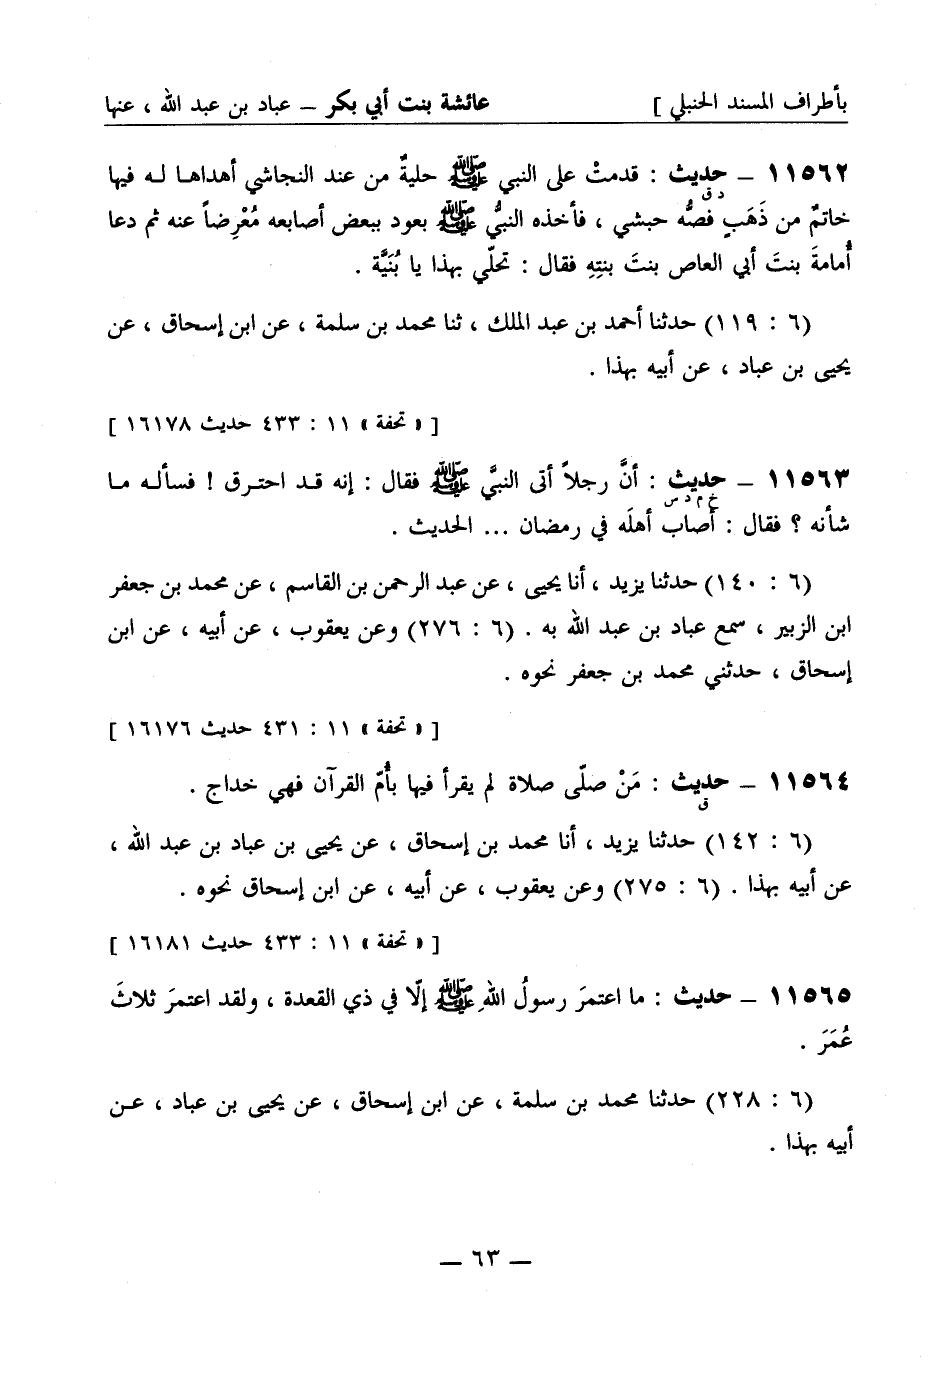 بأطراف المسند الحنبلي ] عائشة بنت أبي بكر – عباد بن عبد الله ، عنها
١١٥٦٢ – حديث : قدمتْ على النبي ﷺ حليةٌ من عند النجاشي أهداهـا لـه فيها
د ق
خاتمٌ من ذَهَبٍ فصُّه حبشي ، فأخذه النبيُّ ﷺ بعود ببعض أصابعه مُعْرِضاً عنه ثم دعا
أُمامةَ بنتَ أبي العاص بنتَ بنتِهِ فقال : تحلّي بهذا يا بُنَيَّة .
(٦ : ١١٩) حدثنا أحمد بن عبد الملك ، ثنا محمد بن سلمة ، عن ابن إسحاق ، عن
يحيى بن عباد ، عن أبيه بهذا .
[ « تحفة » ١١ : ٤٣٣ حديث ١٦١٧٨ ]
١١٥٦٣ – حديث : أنَّ رجلاً أتى النبيَّ ﷺ فقال : إنه قـد احتـرق ! فسألـه مـا
خ م د س
شأنه ؟ فقال : أصاب أهلَه في رمضان ... الحديث .
(٦ : ١٤٠) حدثنا يزيد ، أنا يحيى ، عن عبد الرحمن بن القاسم ، عن محمد بن جعفر
ابن الزبير ، سمع عباد بن عبد الله به . (٦ : ٢٧٦) وعن يعقوب ، عن أبيه ، عن ابن
إسحاق ، حدثني محمد بن جعفر نحوه .
[ « تحفة » ١١ : ٤٣١ حديث ١٦١٧٦ ]
١١٥٦٤ – حديث : مَنْ صلّى صلاة لم يقرأ فيها بأُمّ القرآن فهي خداج .
ق
(٦ : ١٤٢) حدثنا يزيد ، أنا محمد بن إسحاق ، عن يحيى بن عباد بن عبد الله ،
عن أبيه بهذا . (٦ : ٢٧٥) وعن يعقوب ، عن أبيه ، عن ابن إسحاق نحوه .
[ « تحفة » ١١ : ٤٣٣ حديث ١٦١٨١ ]
١١٥٦٥ – حديث : ما اعتمرَ رسولُ اللهِ ﷺ إلّا في ذي القعدة ، ولقد اعتمرَ ثلاثَ
عُمَرَ .
(٦ : ٢٢٨) حدثنا محمد بن سلمة ، عن ابن إسحاق ، عن يحيى بن عباد ، عـن
أبيه بهذا .
– ٦٣ –